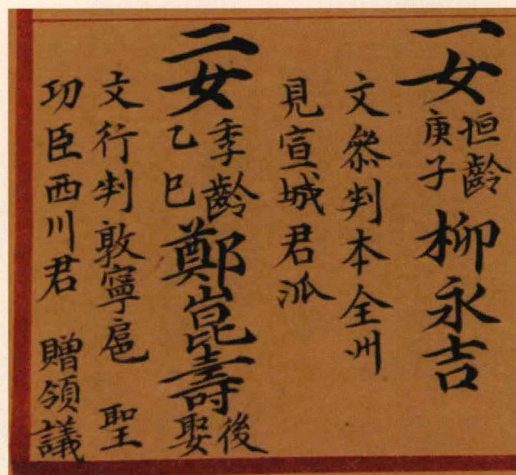 一女 恒齡 庚子 柳永吉
文叅判本全州
見宣城君派
二女 季齡 乙巳 鄭崑壽 後娶
文行判敦寧扈 聖
功臣西川君 贈領議